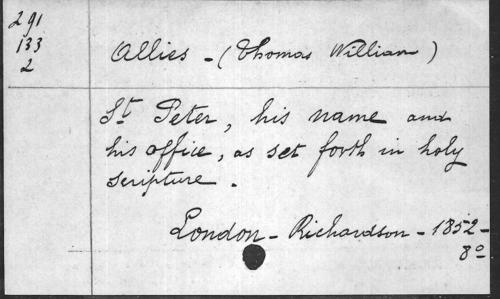 291
133
2
Allies - (Thomas William)
St Peter, his name and
his office, as set forth in holy
scripture.
London - Richardson - 1852 -
8o